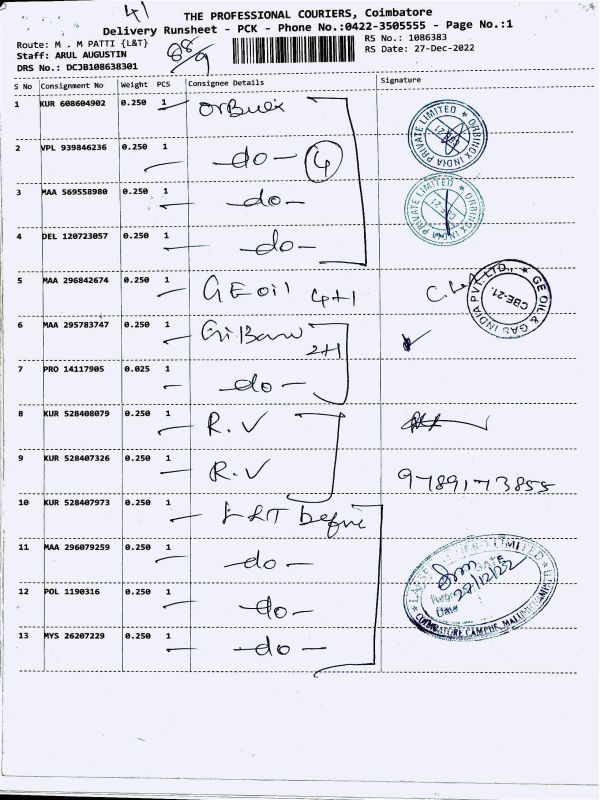 41
THE PROFESSIONAL COURIERS, Coimbatore
Delivery Runsheet - PCK - Phone No.:0422-3505555 - Page No.:1
Route: M . M PATTI {L&T}
RS No.: 1086383
Staff: ARUL AUGUSTIN
RS Date: 27-Dec-2022
DRS No.: DCJB108638301
S No Consignment No Weight PCS Consignee Details Signature
1 KUR 608604902 0.250 1 Orbinox
ORBINOX INDIA PRIVATE LIMITED
2 VPL 939846236 0.250 1 -do- 4
3 MAA 569558980 0.250 1 -do-
ORBINOX INDIA PRIVATE LIMITED
4 DEL 120723057 0.250 1 -do-
5 MAA 296842674 0.250 1 GE oil 4+1
GE OIL & GAS INDIA PVT. LTD., CBE-21.
6 MAA 295783747 0.250 1 2+1
7 PRO 14117905 0.025 1 -do-
8 KUR 528408079 0.250 1 R.V
9 KUR 528407326 0.250 1 R.V 9789173855
10 KUR 528407973 0.250 1 L&T
11 MAA 296079259 0.250 1 -do-
LIMITED
27/12/22
Date
COIMBATORE CAMPUS,
12 POL 1190316 0.250 1 -do-
13 MYS 26207229 0.250 1 -do-